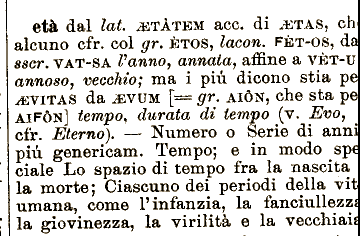 età dal lat. ÆTÀTEM acc. di ÆTAS, ch
alcuno cfr. col gr. ÈTOS, lacon. FÈT-OS, da
sscr. VAT-SA l'anno, annata, affine a VÈT-U
annoso, vecchio; ma i più dicono stia pe
ÆVITAS da ÆVUM [= gr. AIÔN, che sta pe
AIFÔN] tempo, durata di tempo (v. Evo,
cfr. Eterno). — Numero o Serie di anni
più genericam. Tempo; e in modo spe
ciale Lo spazio di tempo fra la nascita
la morte; Ciascuno dei periodi della vit
umana, come l'infanzia, la fanciullezz
la giovinezza, la virilità e la vecchiai